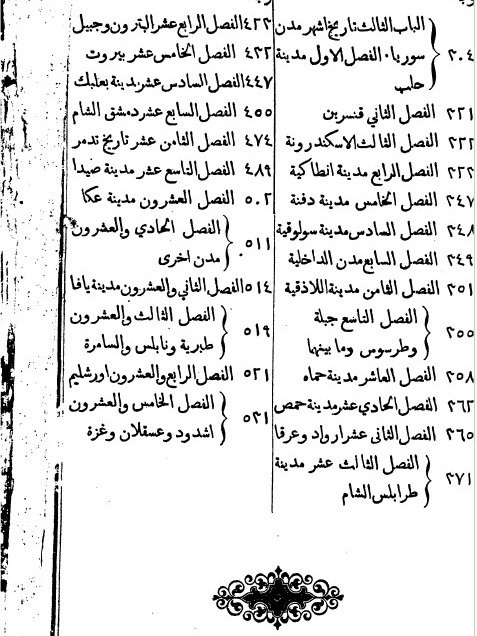 الباب الثالث تاريخ اشهر مدن
٣٠٤ سوريا. الفصل الاول مدينة
حلب
الفصل الثاني قنسرين
الفصل الثالث الاسكندرونة
الفصل الرابع مدينة انطاكية
٣٤٧ الفصل الخامس مدينة دفنة
٣٤٨ الفصل السادس مدينة سولوقية
٣٤٩ الفصل السابع مدن الداخلية
٣٥١ الفصل الثامن مدينة اللاذقية
٣٥٥ الفصل التاسع جبلة
وطرسوس وما بينهما
٣٥٨ الفصل العاشر مدينة حماه
الفصل الحادي عشر مدينة حمص
٣٦٥ الفصل الثانى عشر ارواد وعرقا
٣٧١ الفصل الثالث عشر مدينة
طرابلس الشام
الفصل الرابع عشر البترون وجبيل
٤٣٢ الفصل الخامس عشر بيروت
٤٤٧ الفصل السادس عشر مدينة بعلبك
٤٥٥ الفصل السابع عشر دمشق الشام
٤٧٤ الفصل الثامن عشر تاريخ تدمر
٤٨٩ الفصل التاسع عشر مدينة صيدا
٥٠٢ الفصل العشرون مدينة عكا
٥١١ الفصل الحادي والعشرون
مدن اخرى
٥١٤ الفصل الثاني والعشرون مدينة يافا
٥١٩ الفصل الثالث والعشرون
طبرية ونابلس والسامرة
٥٢١ الفصل الرابع والعشرون اورشليم
٥٣١ الفصل الخامس والعشرون
اشدود وعسقلان وغزة